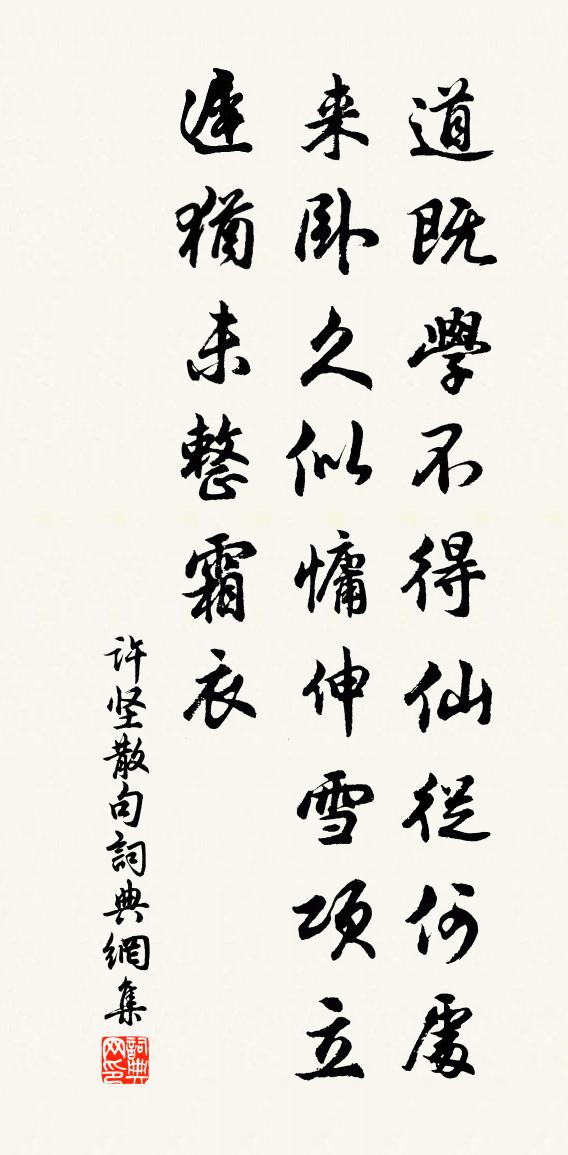 道既學不得仙從何處
来卧久似慵伸雪项立
遲猶未整霜衣
许坚散句詞典網集
詞典网印